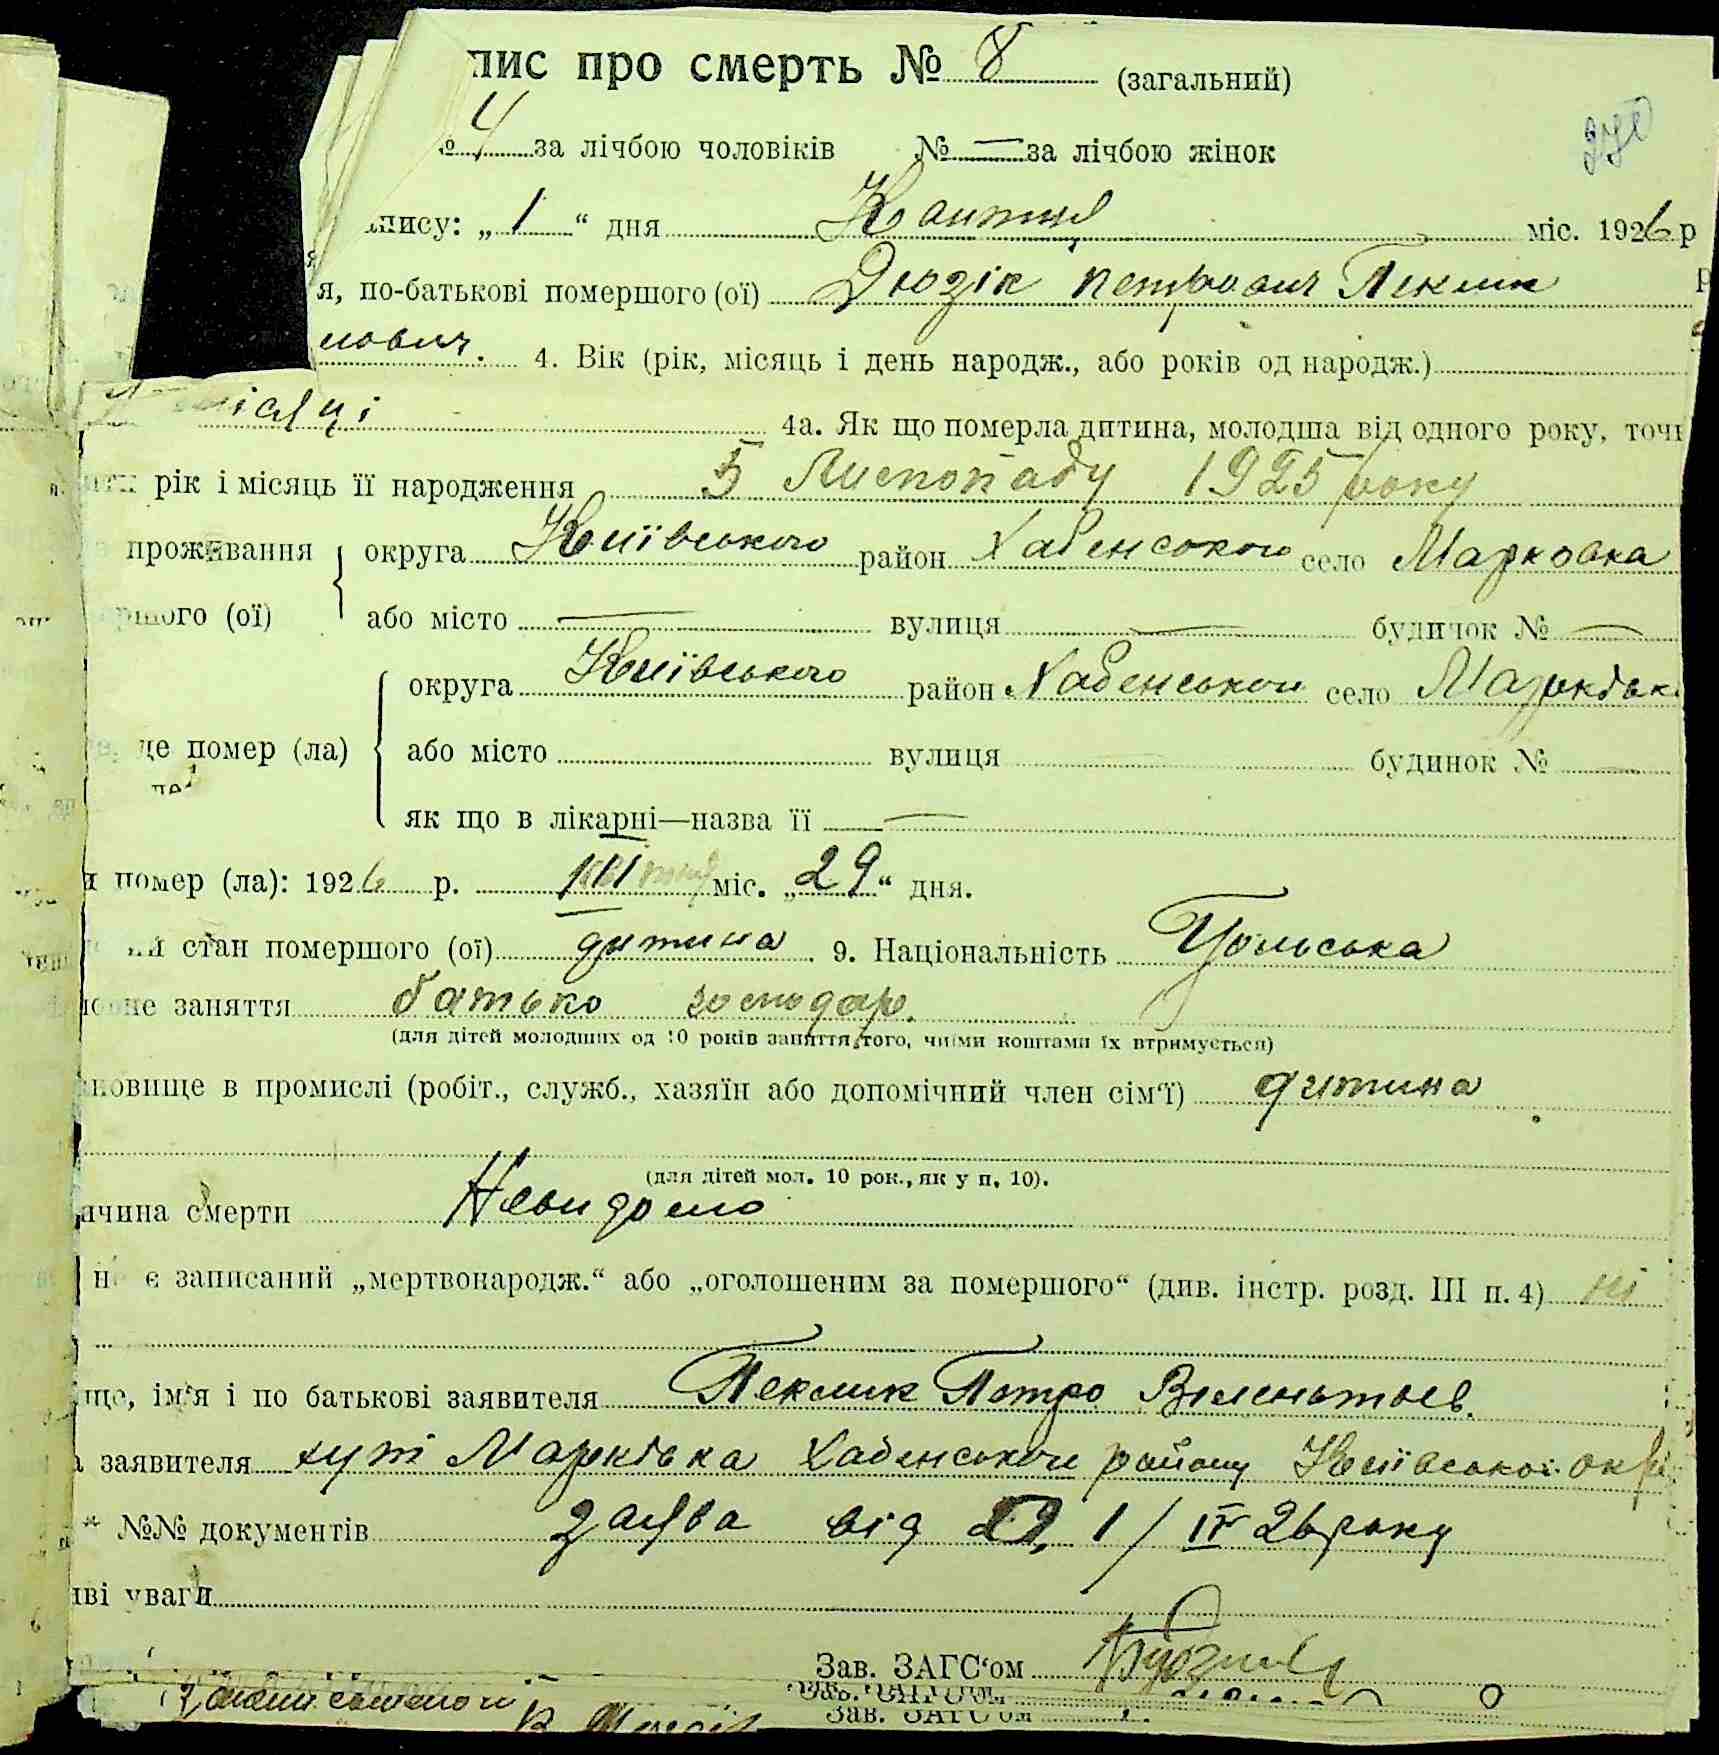 пис про смерть № 8 (загальний)
№ 4 за лічбою чоловіків № — за лічбою жінок
270
апису: „ 1 “ дня Квітня міс. 1926 р
я, по-батькові помершого (ої) Дюзік Петрович Пеклик
4. Вік (рік, місяць і день народж., або років од народж.)
місяці 4а. Як що померла дитина, молодша від одного року, точ
рік і місяць її народження 5 Листопаду 1925 року
проживання округа Київського район Хабенського село Марковка
ршого (ої) або місто — вулиця — будинок № —
округа Київського район Хабенського село Марківк
де помер (ла) або місто вулиця будинок № —
як що в лікарні—назва її —
помер (ла): 1926 р. III міс. „29“ дня.
стан помершого (ої) дитина . 9. Національність Польська
заняття батько господар.
(для дітей молодших од 10 років заняття того, чиїми коштами їх втримується)
новище в промислі (робіт., служб., хазяїн або допомічний член сім'ї) дитина
(для дітей мол. 10 рок., як у п. 10).
ичина смерти Невидомо
не є записаний „мертвонародж.“ або „оголошеним за помершого“ (див. інстр. розд. III п. 4) ні
ще, ім'я і по батькові заявителя Пеклик Петро
заявителя хут Марківка Хабенського району Київської окр
№№ документів заява від 1/IV 26 року
иві уваги
Зав. ЗАГС'ом
Зав. ЗАГС'ом